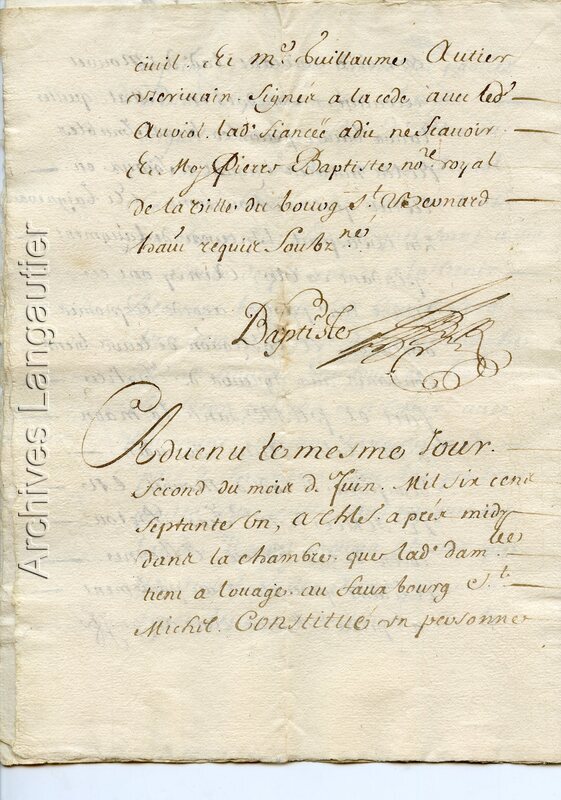 civil. Et mr. Guillaume Autier
Escrivain. Signés a la cede, avec led.
Auriol. lad. fiancée a dit ne scavoir.
Et Moy Pierre Baptiste nore. royal
de la ville du bourg St. Bernard
requis Soubzné
Baptiste
Advenu le mesme Jour.
second du mois de Juin. Mil six cent
septante Un, a après midy
dans la chambre que lad. damlle
tient a louage. au faux bourg St.
Michel. Constitué en personne
Archives Langautier